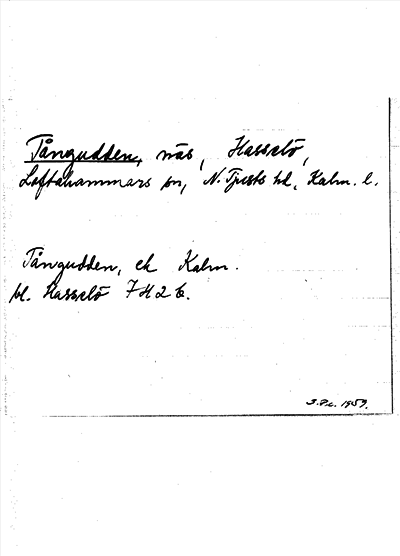 Tångudden, näs, Hasselö,
Loftahammars sn, N. Tjusts hd, Kalm. l.
Tångudden, ek Kalm.
bl. Hasselö 7H2b.
1959.